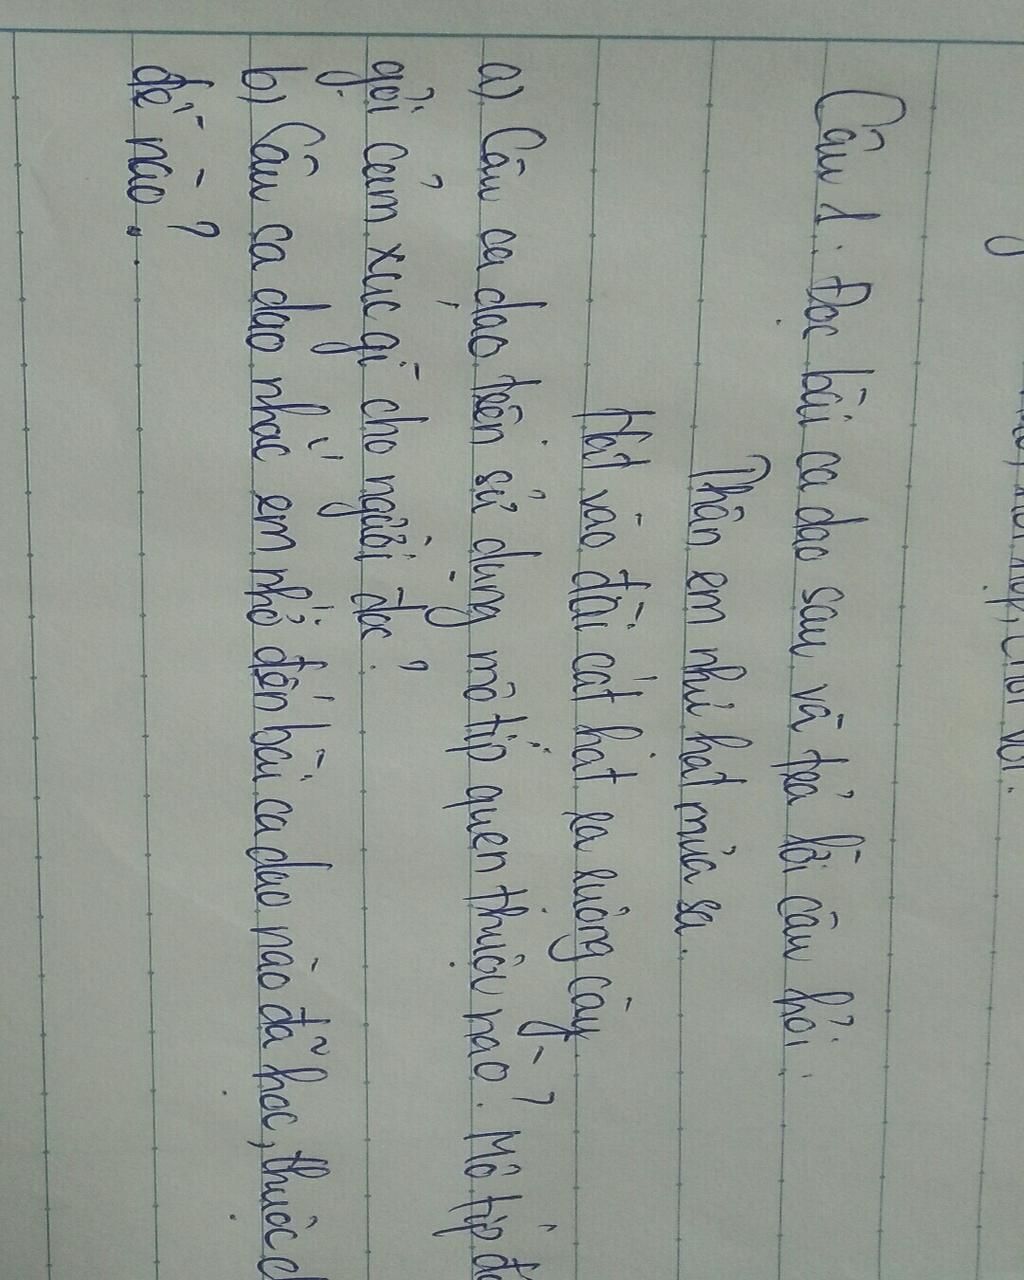 Câu 1: Đọc bài ca dao sau và trả lời câu hỏi:
Thân em như hạt mưa sa.
Hạt vào đài cát hạt ra ruộng cày
a) Câu ca dao trên sử dụng mô típ quen thuộc nào? Mô típ
gợi cảm xúc gì cho người đọc?
b) Câu ca dao nhắc em nhớ đến bài ca dao nào đã học, thuộc
đề nào?